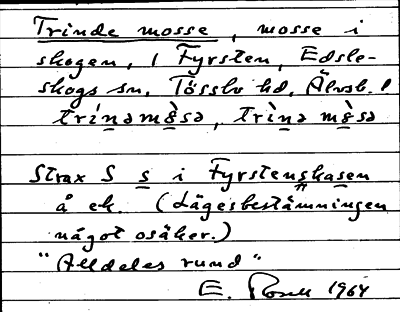 Trinde mosse, mosse i
skogen, 1 Fyrsten, Edsle-
skogs sn, Tössbo hd, Älvsb. l
trínəmo̠̊̀sə, trì̠nə mò̠sə
Strax S s̲ i Fyrstenskasen
å ek. (Lägesbestämningen
något osäker.)
"Alldeles rund"
E. 1964